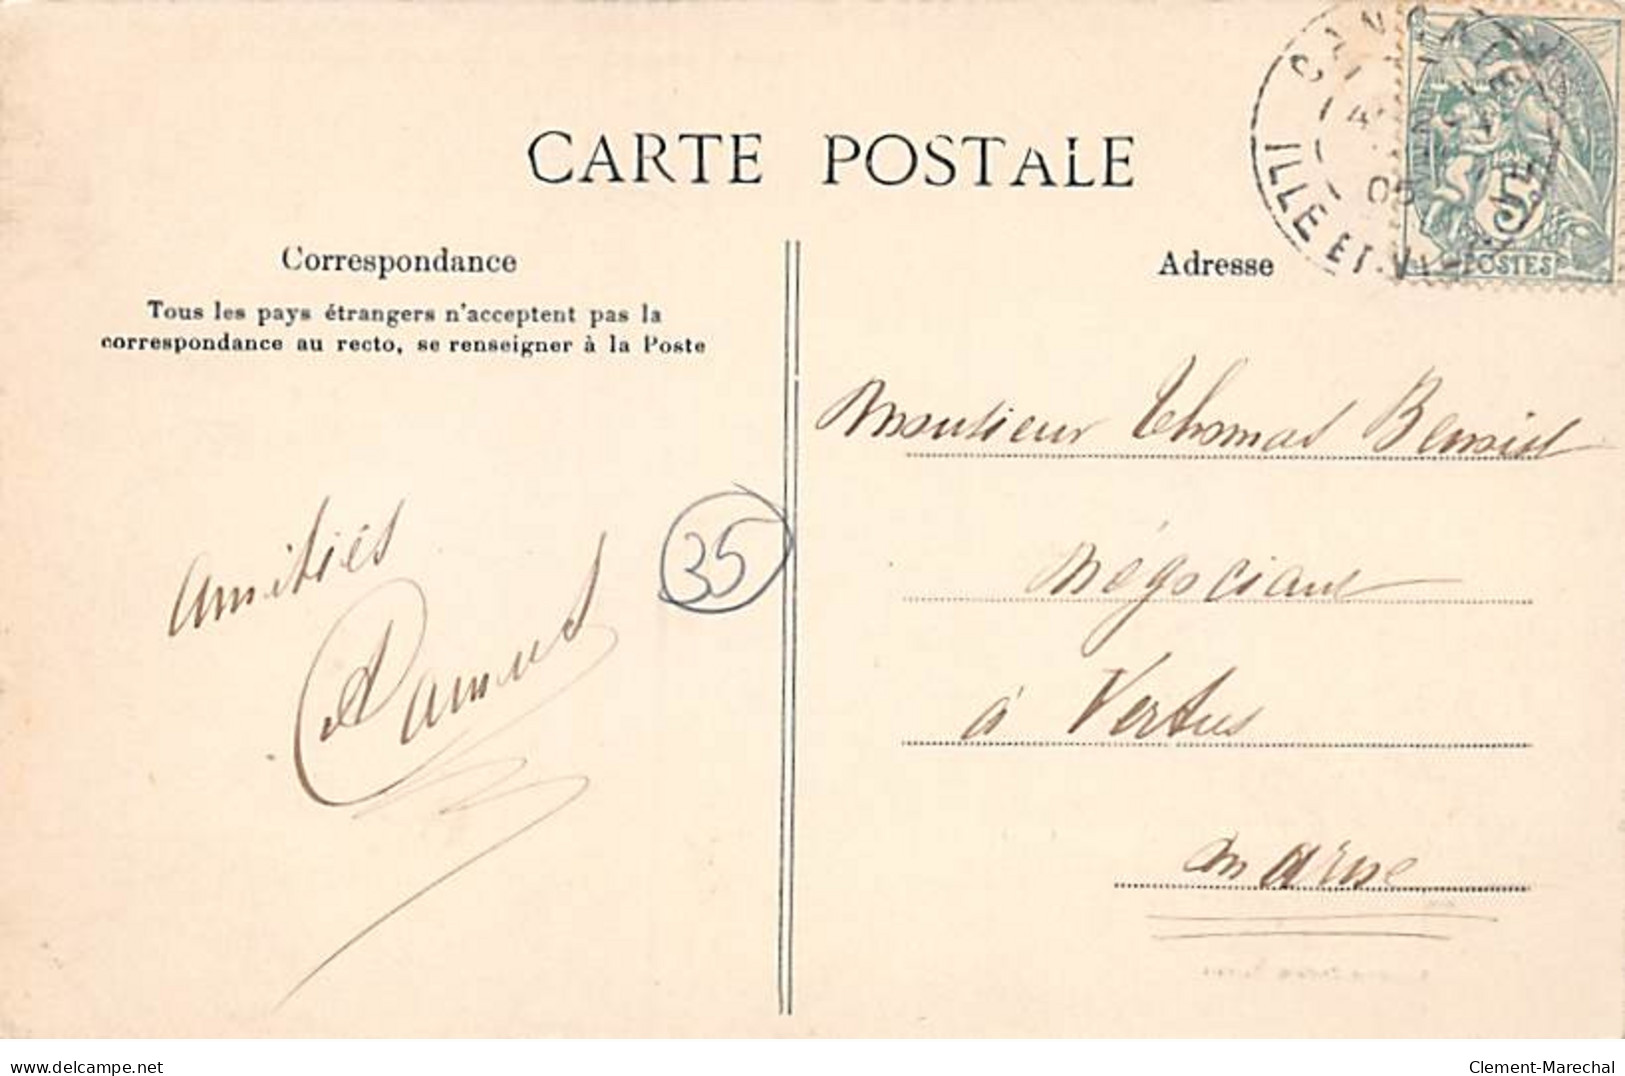 CARTE POSTALE
Correspondance
Tous les pays étrangers n'acceptent pas la
correspondance au recto, se renseigner à la Poste
Adresse
ILLE ET VI
05
5
POSTES
Monsieur Thomas Benoist
Négociant
à Vertus
Marne
Amitiés
35
delcampe.net
Clement-Marechal